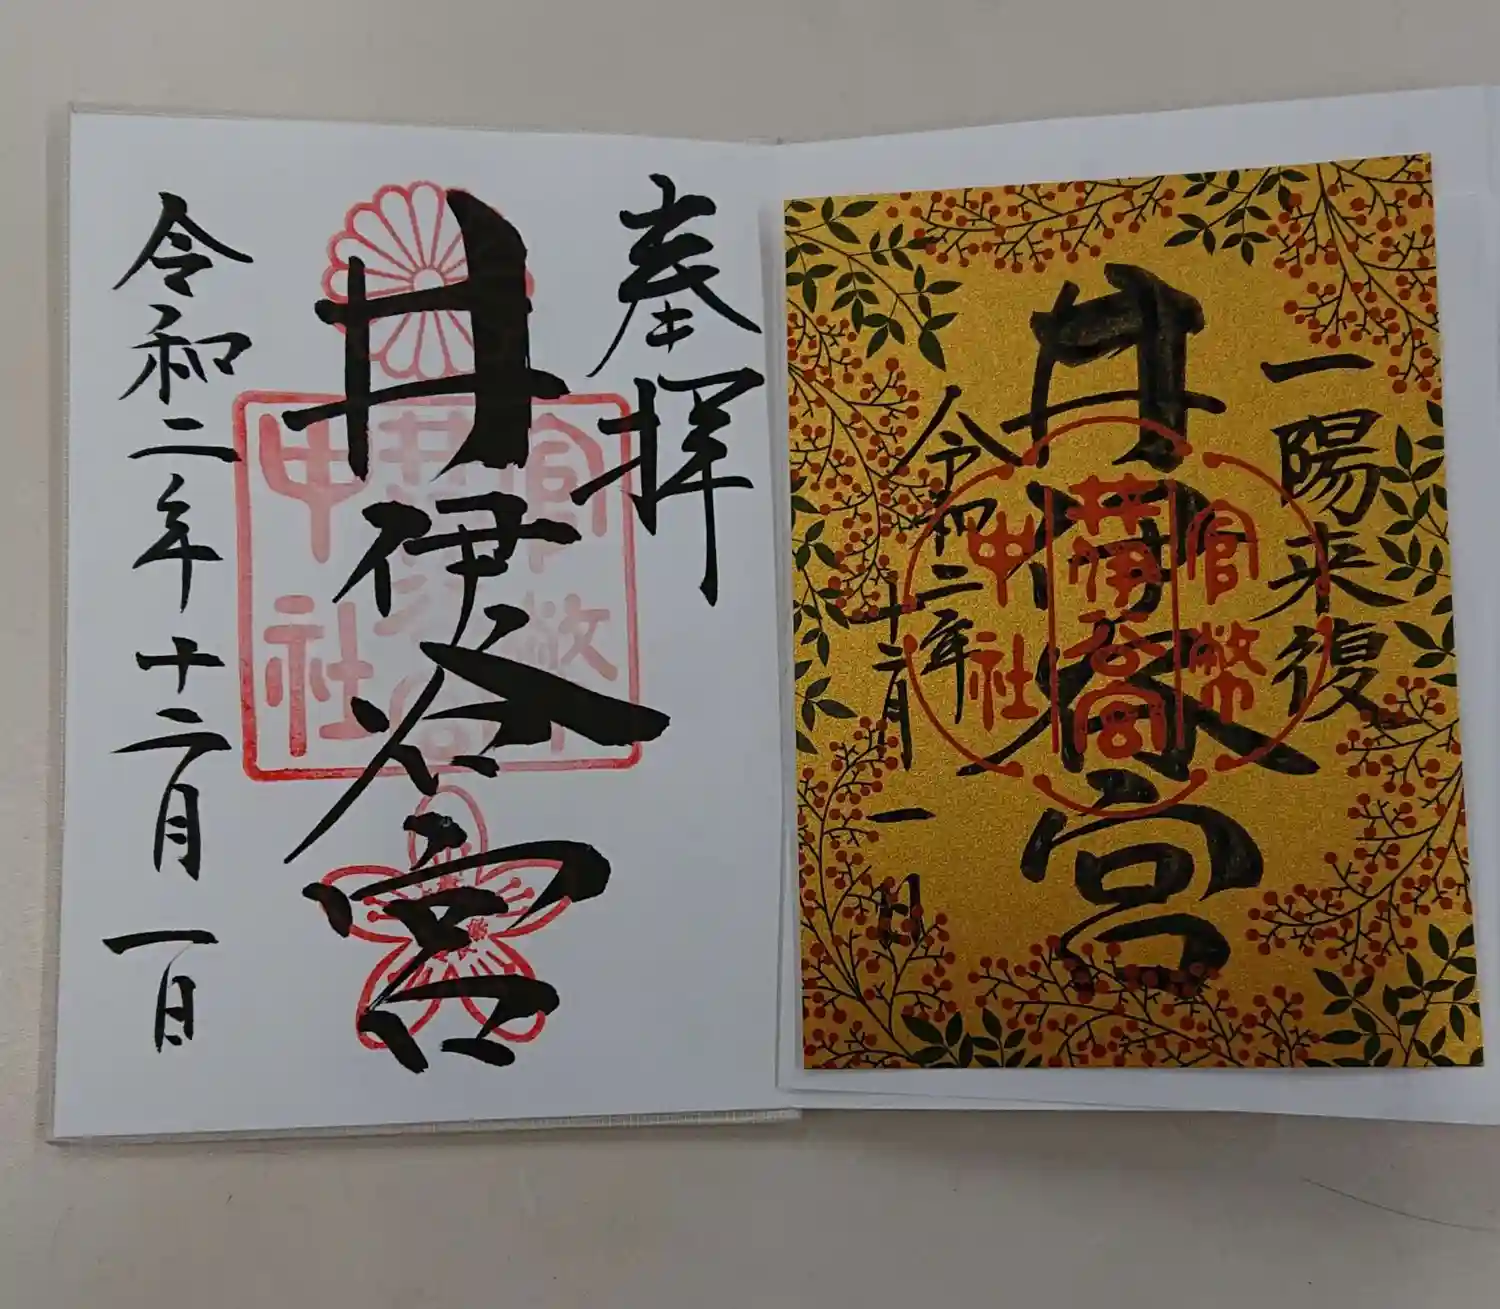 一陽来復
井伊谷宮
官幣
井伊谷宮
中社
令和二年
十二月一日
奉拝
井伊谷宮
官幣
井伊谷宮
中社
令和二年十二月一日